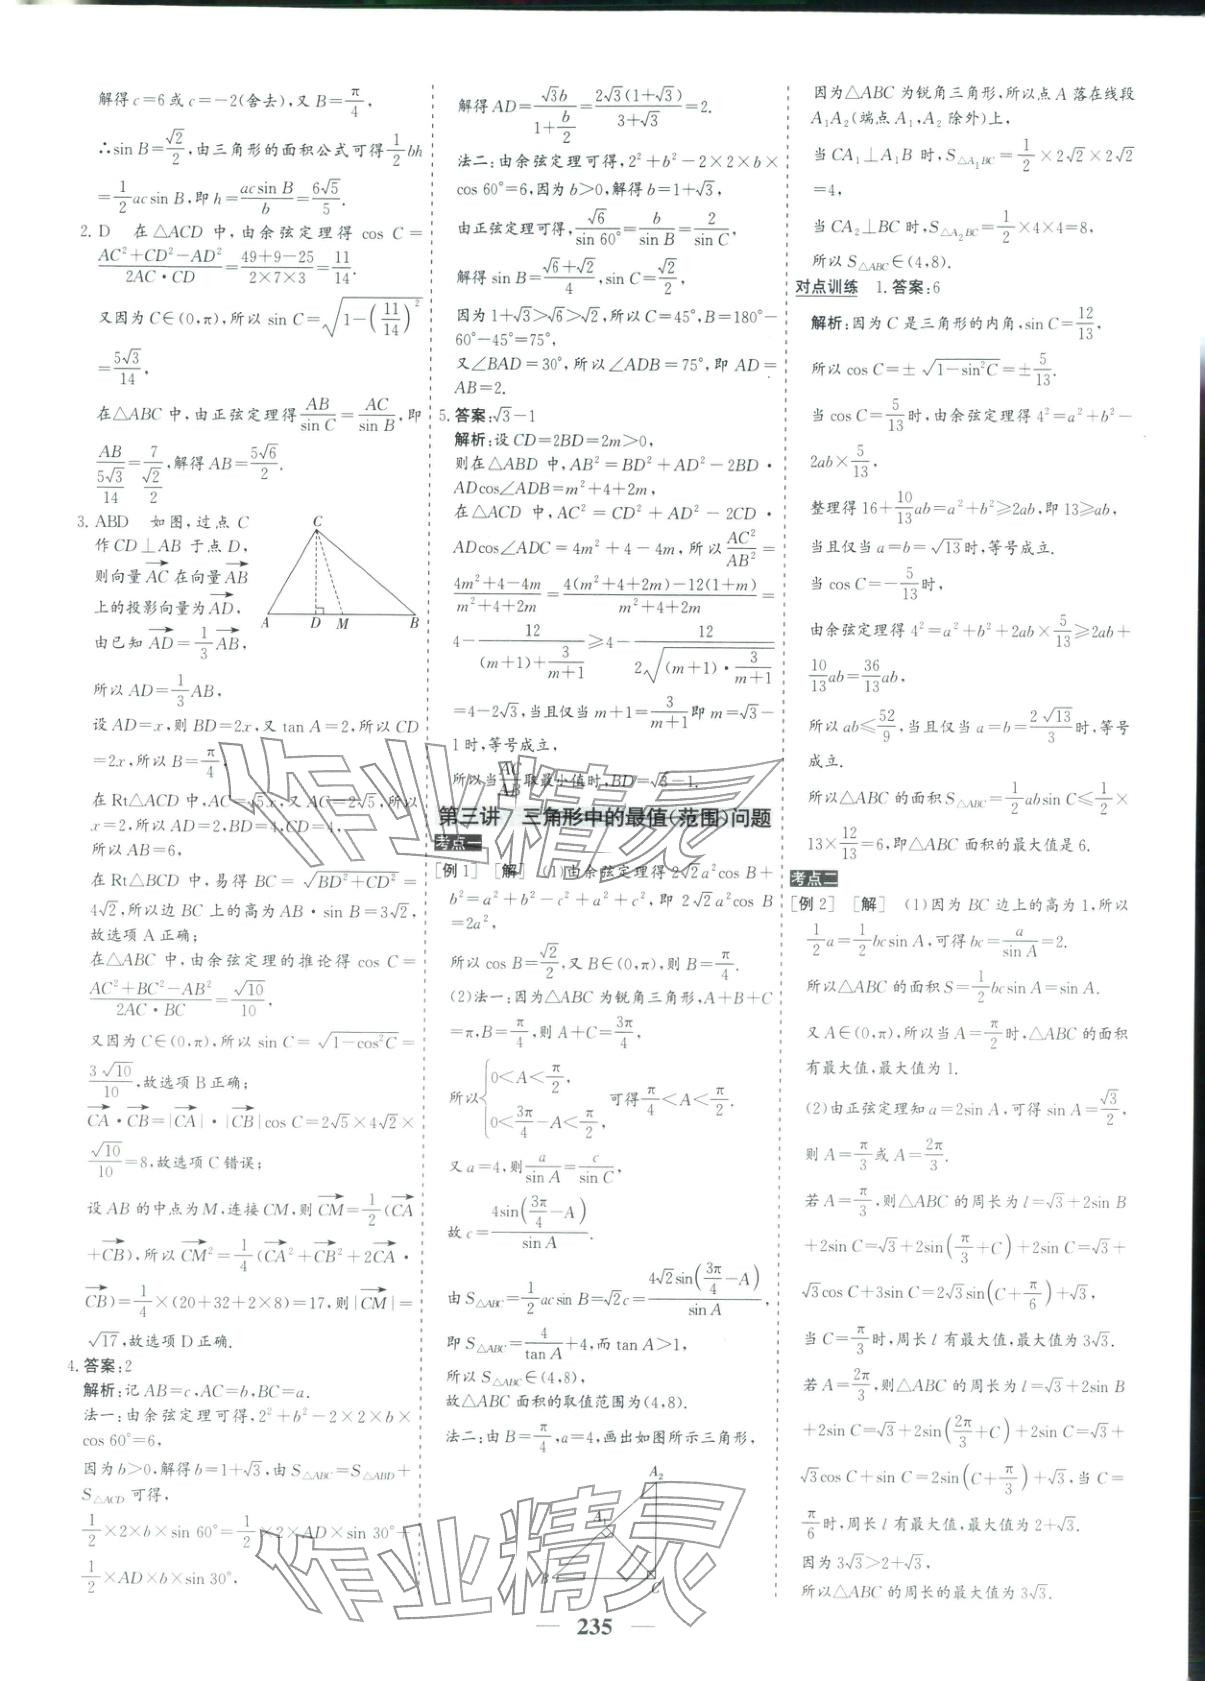 解得 c=6 或 c=-2(舍去),又 B=π/4,
∴sin B=√2/2,由三角形的面积公式可得 1/2 bh
=1/2 acsin B,即 h=acsin B/b=6√5/5.
2. D 在△ACD 中,由余弦定理得 cos C=
(AC²+CD²-AD²)/(2AC·CD)=(49+9-25)/(2×7×3)=11/14.
又因为 C∈(0,π),所以 sin C=√(1-(11/14)²)
=5√3/14,
在△ABC 中,由正弦定理得 AB/sin C=AC/sin B,即
AB/(5√3/14)=7/(√2/2),解得 AB=5√6/2.
3. ABD 如图,过点 C
作 CD⊥AB 于点 D,
则向量 AC→ 在向量 AB→
上的投影向量为 AD→,
由已知 AD→=1/3 AB→,
C
A D M B
所以 AD=1/3 AB,
设 AD=x,则 BD=2x,又 tan A=2,所以 CD
=2x,所以 B=π/4,
在 Rt△ACD 中,AC=√5x,又 AC=2√5,所以
x=2,所以 AD=2,BD=4,CD=4,
所以 AB=6,
在 Rt△BCD 中,易得 BC=√(BD²+CD²)=
4√2,所以边 BC 上的高为 AB·sin B=3√2,
故选项 A 正确;
在△ABC 中,由余弦定理的推论得 cos C=
(AC²+BC²-AB²)/(2AC·BC)=√10/10,
又因为 C∈(0,π),所以 sin C=√(1-cos²C)=
3√10/10,故选项 B 正确;
CA→·CB→=|CA→|·|CB→|cos C=2√5×4√2×
√10/10=8,故选项 C 错误;
设 AB 的中点为 M,连接 CM,则 CM→=1/2(CA→
+CB→),所以 CM→²=1/4(CA→²+CB→²+2CA→·
CB→)=1/4×(20+32+2×8)=17,则|CM→|=
√17,故选项 D 正确.
4. 答案:2
解析:记 AB=c,AC=b,BC=a.
法一:由余弦定理可得,2²+b²-2×2×b×
cos 60°=6,
因为 b>0,解得 b=1+√3,由 S△ABC=S△ABD+
S△ACD 可得,
1/2×2×b×sin 60°=1/2×2×AD×sin 30°+
1/2×AD×b×sin 30°,
解得 AD=√3b/(1+b/2)=2√3(1+√3)/(3+√3)=2.
法二:由余弦定理可得,2²+b²-2×2×b×
cos 60°=6,因为 b>0,解得 b=1+√3,
由正弦定理可得,√6/sin 60°=b/sin B=2/sin C,
解得 sin B=(√6+√2)/4,sin C=√2/2,
因为 1+√3>√6>√2,所以 C=45°,B=180°-
60°-45°=75°,
又∠BAD=30°,所以∠ADB=75°,即 AD=
AB=2.
5. 答案:√3-1
解析:设 CD=2BD=2m>0,
则在△ABD 中,AB²=BD²+AD²-2BD·
ADcos∠ADB=m²+4+2m,
在△ACD 中,AC²=CD²+AD²-2CD·
ADcos∠ADC=4m²+4-4m,所以 AC²/AB²=
(4m²+4-4m)/(m²+4+2m)=(4(m²+4+2m)-12(1+m))/(m²+4+2m)=
4-12/((m+1)+3/(m+1))≥4-12/(2√((m+1)·3/(m+1)))
=4-2√3,当且仅当 m+1=3/(m+1)即 m=√3-
1 时,等号成立,
所以当 AC/AB 取最小值时,BD=√3-1.
第三讲 三角形中的最值(范围)问题
考点一
[例 1] [解] (1)由余弦定理得 2√2a²cos B+
b²=a²+b²-c²+a²+c²,即 2√2a²cos B
=2a²,
所以 cos B=√2/2,又 B∈(0,π),则 B=π/4.
(2)法一:因为△ABC 为锐角三角形,A+B+C
=π,B=π/4,则 A+C=3π/4,
所以{0<A<π/2, 0<3π/4-A<π/2, 可得 π/4<A<π/2.
又 a=4,则 a/sin A=c/sin C,
故 c=4sin(3π/4-A)/sin A.
由 S△ABC=1/2 acsin B=√2c=4√2sin(3π/4-A)/sin A,
即 S△ABC=4/tan A+4,而 tan A>1,
所以 S△ABC∈(4,8),
故△ABC 面积的取值范围为(4,8).
法二:由 B=π/4,a=4,画出如图所示三角形,
A₂
A₁
B C
因为△ABC 为锐角三角形,所以点 A 落在线段
A₁A₂(端点 A₁,A₂ 除外)上,
当 CA₁⊥A₁B 时,S△A₁BC=1/2×2√2×2√2
=4,
当 CA₂⊥BC 时,S△A₂BC=1/2×4×4=8,
所以 S△ABC∈(4,8).
对点训练 1. 答案:6
解析:因为 C 是三角形的内角,sin C=12/13,
所以 cos C=±√(1-sin²C)=±5/13.
当 cos C=5/13时,由余弦定理得 4²=a²+b²-
2ab×5/13,
整理得 16+10/13 ab=a²+b²≥2ab,即 13≥ab,
当且仅当 a=b=√13时,等号成立.
当 cos C=-5/13时,
由余弦定理得 4²=a²+b²+2ab×5/13≥2ab+
10/13 ab=36/13 ab,
所以 ab≤52/9,当且仅当 a=b=2√13/3时,等号
成立.
所以△ABC 的面积 S△ABC=1/2 absin C≤1/2×
13×12/13=6,即△ABC 面积的最大值是 6.
考点二
[例 2] [解] (1)因为 BC 边上的高为 1,所以
1/2 a=1/2 bcsin A,可得 bc=a/sin A=2.
所以△ABC 的面积 S=1/2 bcsin A=sin A.
又 A∈(0,π),所以当 A=π/2时,△ABC 的面积
有最大值,最大值为 1.
(2)由正弦定理知 a=2sin A,可得 sin A=√3/2,
则 A=π/3或 A=2π/3.
若 A=π/3,则△ABC 的周长为 l=√3+2sin B
+2sin C=√3+2sin(π/3+C)+2sin C=√3+
√3cos C+3sin C=2√3sin(C+π/6)+√3,
当 C=π/3时,周长 l 有最大值,最大值为 3√3.
若 A=2π/3,则△ABC 的周长为 l=√3+2sin B
+2sin C=√3+2sin(2π/3+C)+2sin C=√3+
√3cos C+sin C=2sin(C+π/3)+√3,当 C=
π/6时,周长 l 有最大值,最大值为 2+√3.
因为 3√3>2+√3,
所以△ABC 的周长的最大值为 3√3.
235
作业精灵
作业精灵